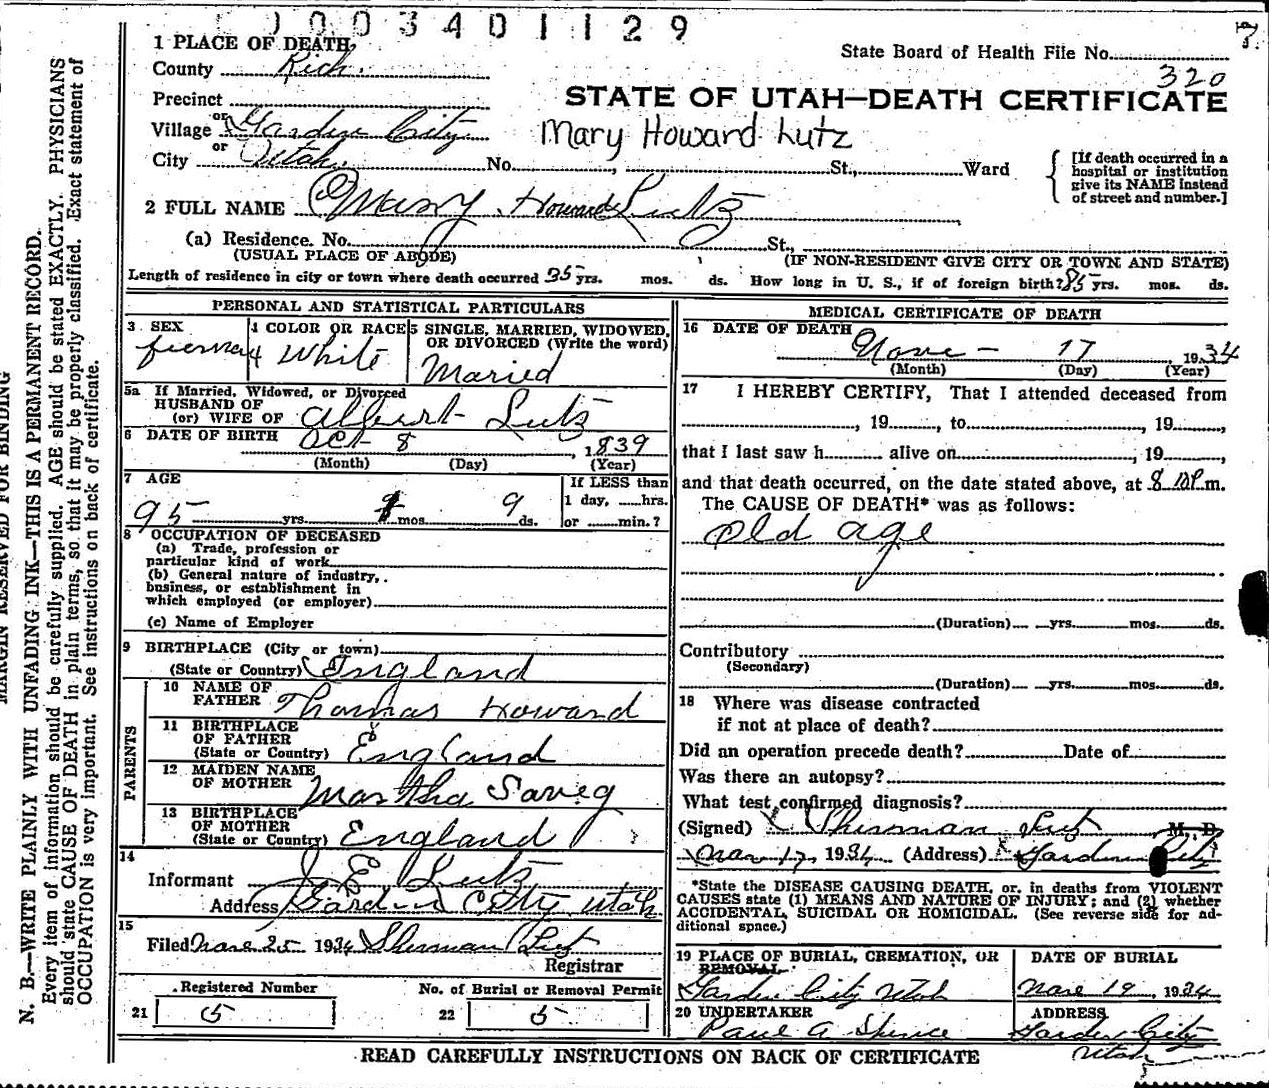 003401129
7.
1 PLACE OF DEATH
State Board of Health File No.
County Rich.
320
Precinct
STATE OF UTAH—DEATH CERTIFICATE
or
Village Garden City
Mary Howard Lutz
or
City Utah. No. , St., Ward
[If death occurred in a hospital or institution give its NAME instead of street and number.]
2 FULL NAME Mary Howard Lutz
(a) Residence. No. St.,
(USUAL PLACE OF ABODE) (IF NON-RESIDENT GIVE CITY OR TOWN AND STATE)
Length of residence in city or town where death occurred 35 yrs. mos. ds. How long in U. S., if of foreign birth? 85 yrs. mos. ds.
PERSONAL AND STATISTICAL PARTICULARS
3 SEX
4 COLOR OR RACE White
5 SINGLE, MARRIED, WIDOWED,
OR DIVORCED (Write the word)
Maried
5a If Married, Widowed, or Divorced
HUSBAND OF
(or) WIFE OF Albert Lutz
6 DATE OF BIRTH Oct 8, 1839
(Month) (Day) (Year)
7 AGE
If LESS than
1 day, hrs.
95 yrs. 1 mos. 9 ds. or min.?
8 OCCUPATION OF DECEASED
(a) Trade, profession or
particular kind of work
(b) General nature of industry,
business, or establishment in
which employed (or employer)
(c) Name of Employer
9 BIRTHPLACE (City or town)
(State or Country) England
PARENTS
10 NAME OF
FATHER Thomas Howard
11 BIRTHPLACE
OF FATHER
(State or Country) England
12 MAIDEN NAME
OF MOTHER Martha Saveg
13 BIRTHPLACE
OF MOTHER
(State or Country) England
14
Informant J E Lutz
Address Garden City Utah
15
Filed Nove 25 1934 Sherman Lutz
Registrar
Registered Number No. of Burial or Removal Permit
21 5 22 5
MEDICAL CERTIFICATE OF DEATH
16 DATE OF DEATH
Nove - 17, 1934
(Month) (Day) (Year)
17 I HEREBY CERTIFY, That I attended deceased from
, 19 , to , 19 ,
that I last saw h alive on , 19 ,
and that death occurred, on the date stated above, at 8 m.
The CAUSE OF DEATH* was as follows:
old age
(Duration) yrs. mos. ds.
Contributory
(Secondary)
(Duration) yrs. mos. ds.
18 Where was disease contracted
if not at place of death?
Did an operation precede death? Date of
Was there an autopsy?
What test confirmed diagnosis?
(Signed) X Sherman Lutz M. D.
Nov 17, 1934 (Address) Garden City
*State the DISEASE CAUSING DEATH, or, in deaths from VIOLENT
CAUSES state (1) MEANS AND NATURE OF INJURY; and (2) whether
ACCIDENTAL, SUICIDAL OR HOMICIDAL. (See reverse side for ad-
ditional space.)
19 PLACE OF BURIAL, CREMATION, OR
REMOVAL
Garden City Utah
DATE OF BURIAL
Nove 19, 1934
20 UNDERTAKER
Paul A Spence
ADDRESS
Garden City
Utah
READ CAREFULLY INSTRUCTIONS ON BACK OF CERTIFICATE
MARGIN RESERVED FOR BINDING
N. B.—WRITE PLAINLY WITH UNFADING INK—THIS IS A PERMANENT RECORD.
Every item of information should be carefully supplied. AGE should be stated EXACTLY. PHYSICIANS
should state CAUSE OF DEATH in plain terms, so that it may be properly classified. Exact statement of
OCCUPATION is very important. See instructions on back of certificate.